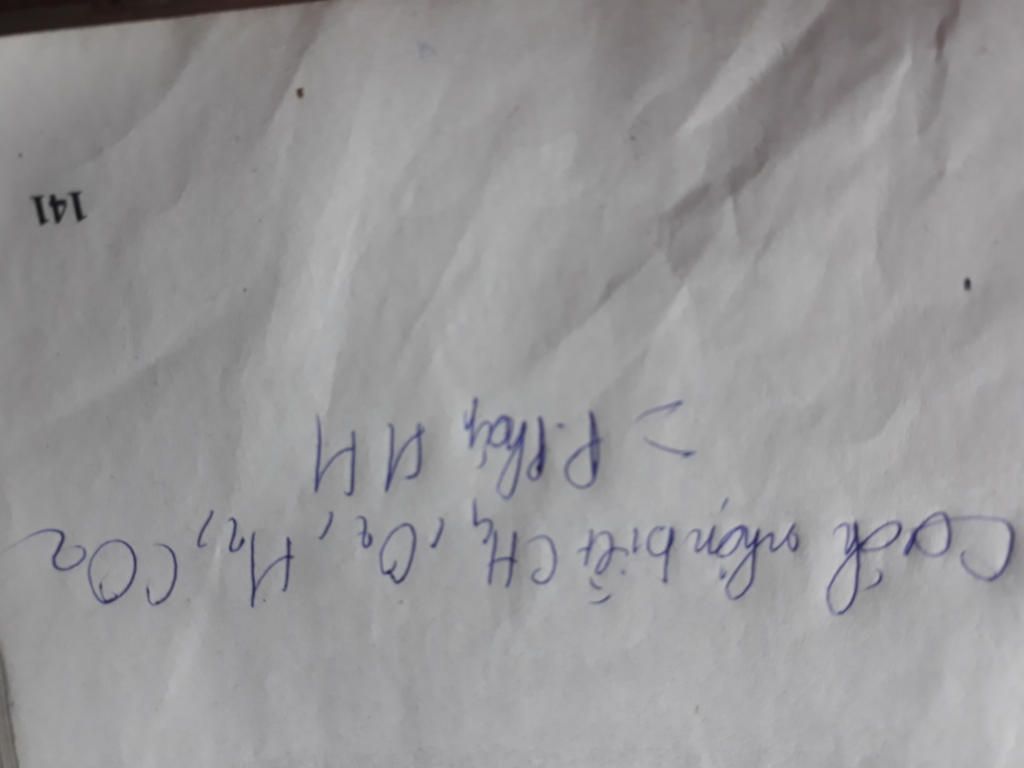 Cách nhận biết CH4, O2, H2, CO2
= P. pháp HH
141